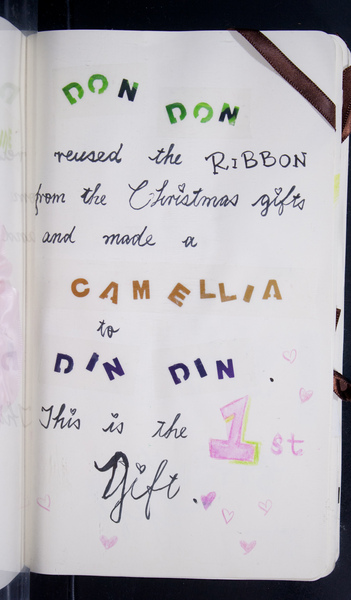 DON DON
reused the RIBBON
from the Christmas gifts
and made a
CAMELLIA
to
DIN DIN.
This is the 1st
Gift.